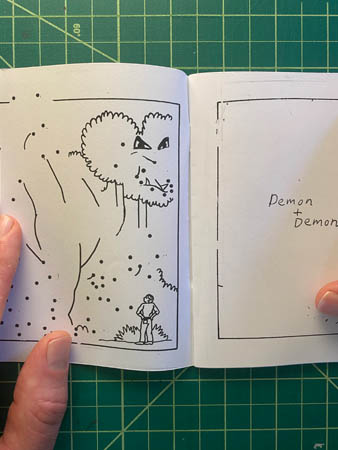 Demon
+
Demon